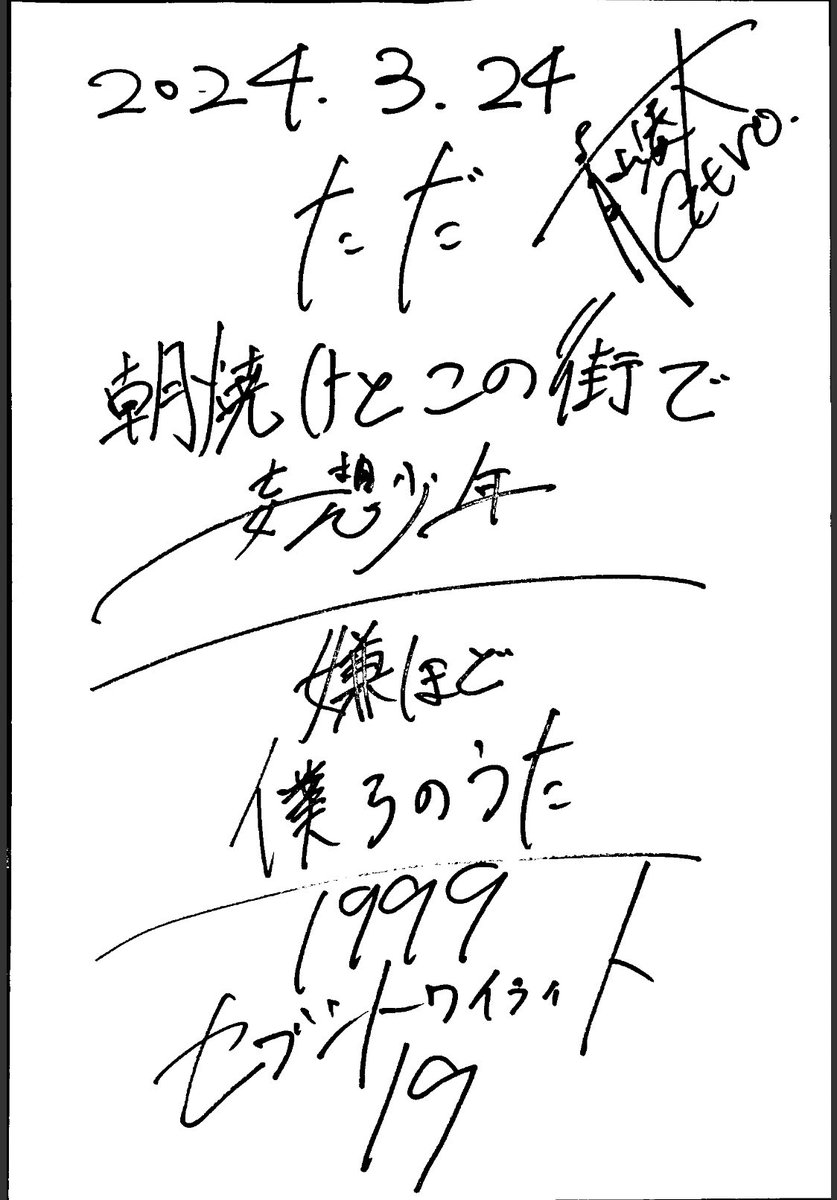 2024.3.24
Zetro.
ただ
朝焼けとこの街で
妄想少年
嫌ほど
僕らのうた
1999
セブントワイライト
19